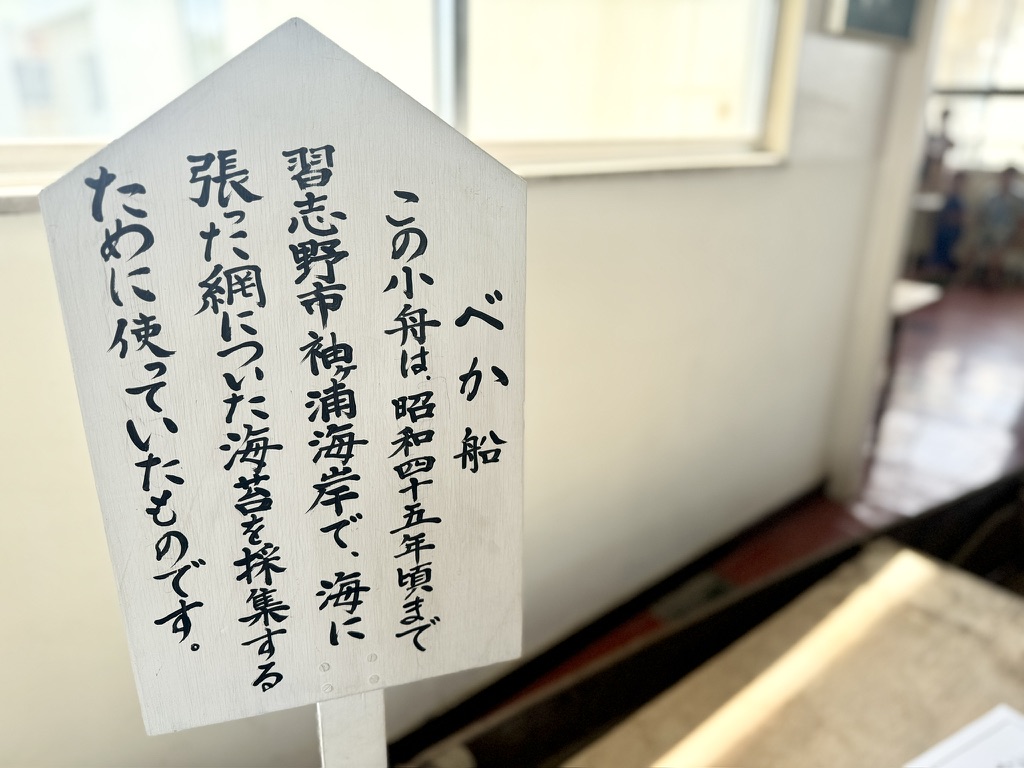 べか船
この小舟は、昭和四十五年頃まで
習志野市袖ヶ浦海岸で、海に
張った網についた海苔を採集する
ために使っていたものです。